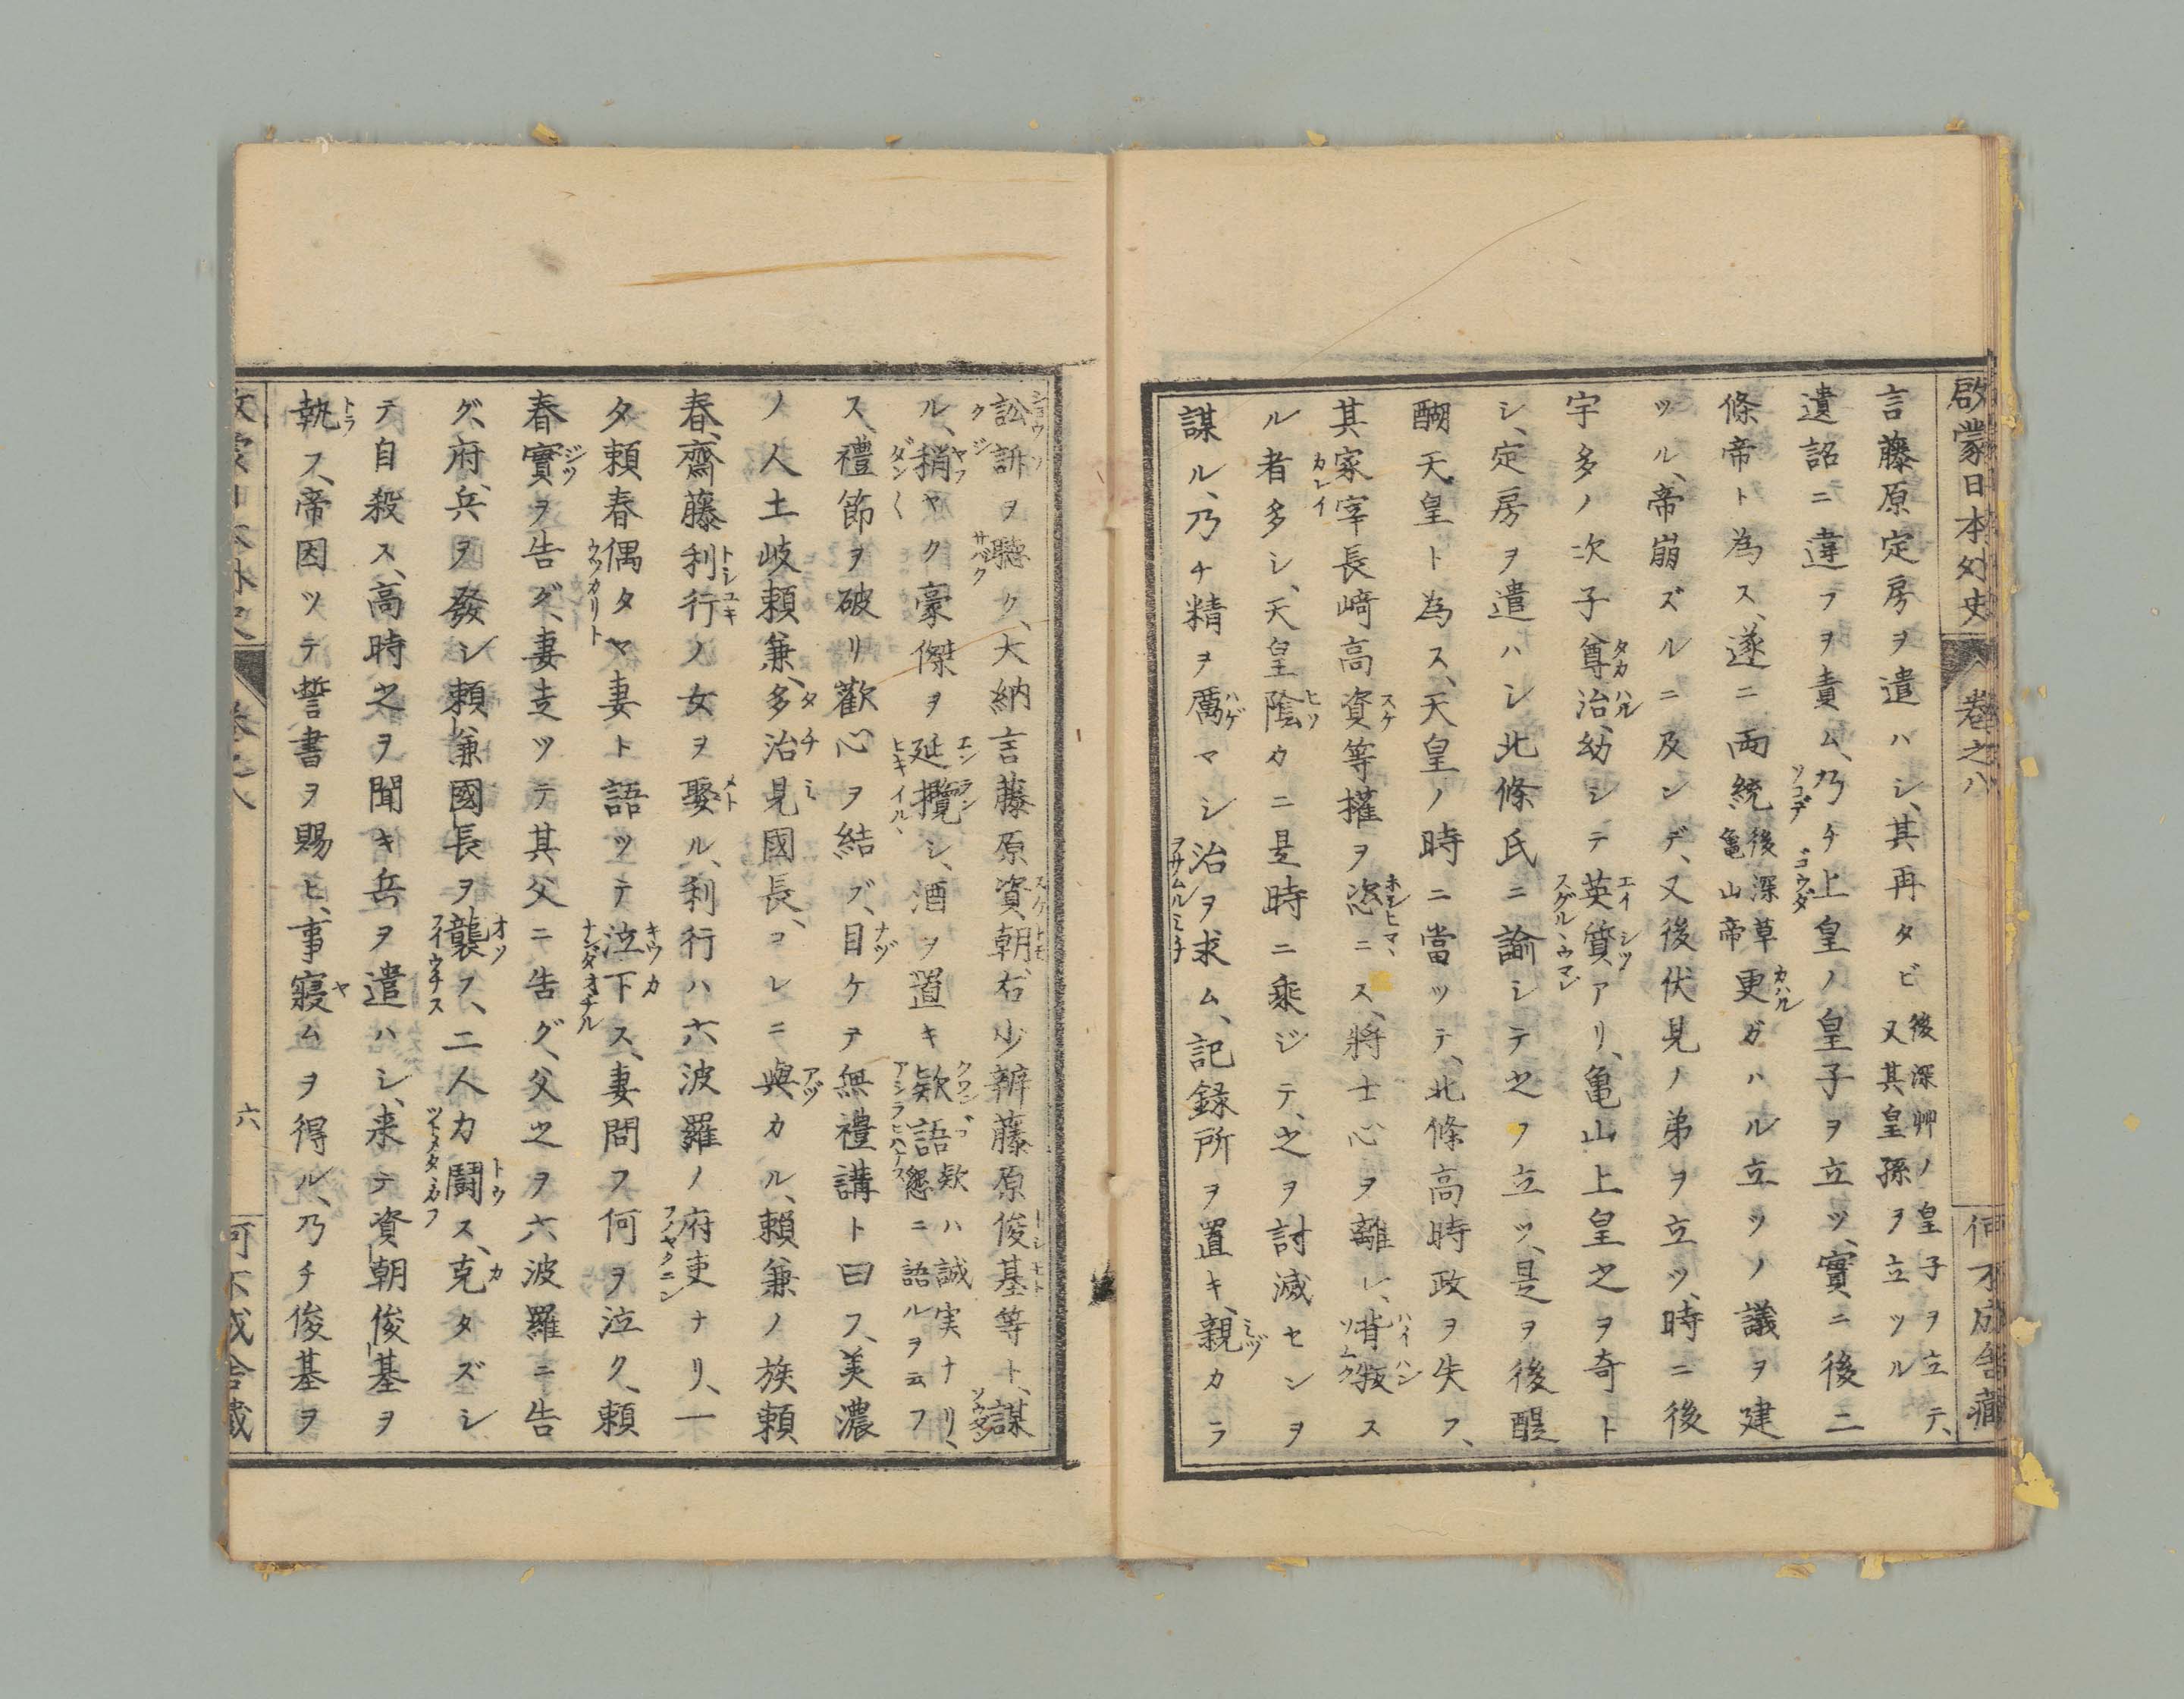 啓蒙日本外史 巻之八 何不成舎蔵
言藤原定房ヲ遣ハシ、其再タビ後深艸ノ皇子ヲ立テ、又其皇孫ヲ立ツル
遺詔ニ違フヲ責ム、乃チ上皇ノ皇子ヲ立ツ、實ニ後二
條帝ト為ス、遂ニ両統後深草亀山帝更ガハル立ツノ議ヲ建
ツル、帝崩ズルニ及ンデ、又後伏見ノ弟ヲ立ツ、時ニ後
宇多ノ次子尊治、幼シテ英質アリ、亀山上皇之ヲ奇ト
シ、定房ヲ遣ハシ北條氏ニ諭シテ之ヲ立ツ、是ヲ後醍
醐天皇ト為ス、天皇ノ時ニ當ツテ、北條高時政ヲ失フ、
其家宰長﨑高資等權ヲ恣ニス、將士心ヲ離レ、背叛ス
ル者多シ、天皇陰カニ是時ニ乗ジテ、之ヲ討滅センヲ
謀ル、乃チ精ヲ厲マシ治ヲ求ム、記録所ヲ置キ、親カラ
訟訴ヲ聴ク、大納言藤原資朝、右少辨藤原俊基等ト、謀
ル、稍ヤク豪傑ヲ延攬シ、酒ヲ置キ欵語欵ハ誠実ナリ、懇ニ語ルヲ云フ
ス、禮節ヲ破リ歡心ヲ結ブ、目ケテ無禮講ト曰ス、美濃
ノ人土岐頼兼、多治見國長、コレニ與カル、頼兼ノ族頼
春、齋藤利行ノ女ヲ娶ル、利行ハ六波羅ノ府吏ナリ、一
夕頼春偶タマ妻ト語ツテ泣下ス、妻問フ何ヲ泣ク、頼
春實ヲ告グ、妻走ツテ其父ニ告グ、父之ヲ六波羅ニ告
グ、府、兵ヲ發シ頼兼國長ヲ襲フ、二人力闘ス、克タズシ
テ自殺ス、高時之ヲ聞キ兵ヲ遣ハシ、来テ資朝俊基ヲ
執ス、帝因ツテ誓書ヲ賜ヒ、事寢ムヲ得ル、乃チ俊基ヲ
六